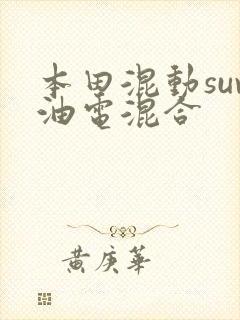 本田混動su
油電混合
黄庚華